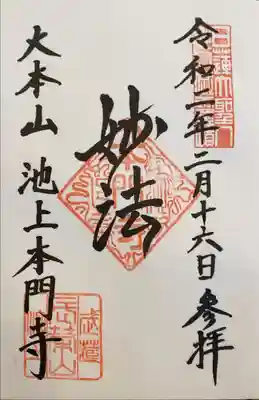 令和二年二月十六日参拝
妙法
大本山 池上本門寺